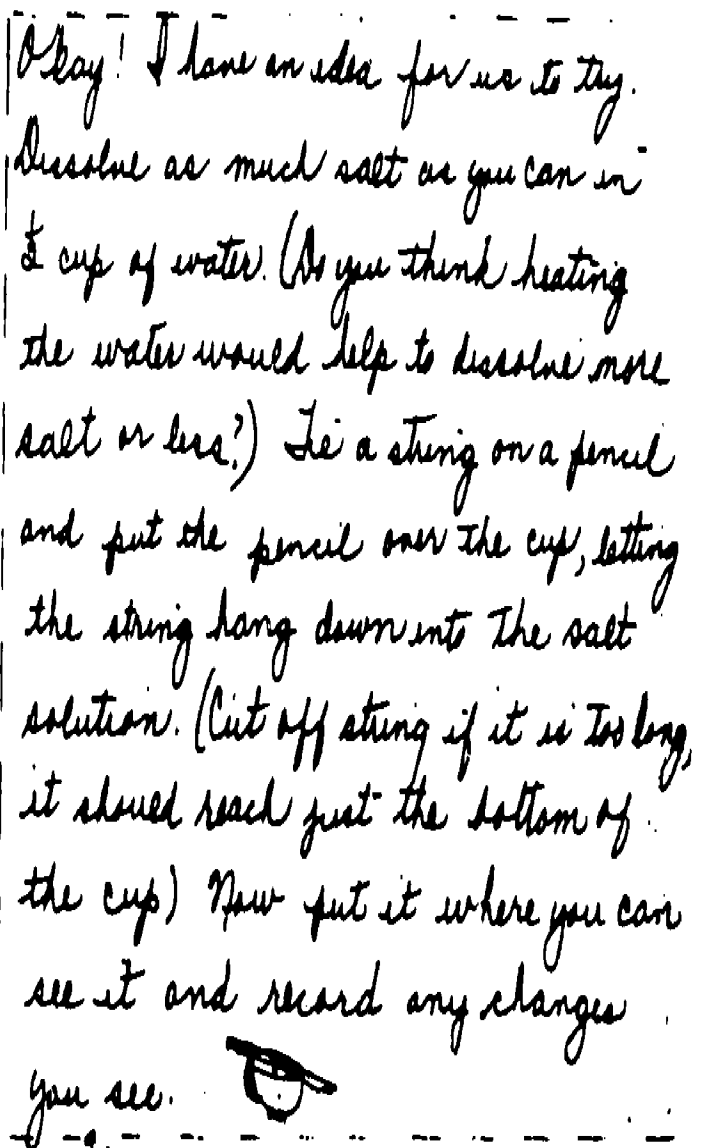 Okay! I have an idea for us to try.
Dissolve as much salt as you can in
½ cup of water. (Do you think heating
the water would help to dissolve more
salt or less?) Tie a string on a pencil
and put the pencil over the cup, letting
the string hang down into the salt
solution. (Cut off string if it is too long,
it should reach just the bottom of
the cup) Now put it where you can
see it and record any changes
you see.